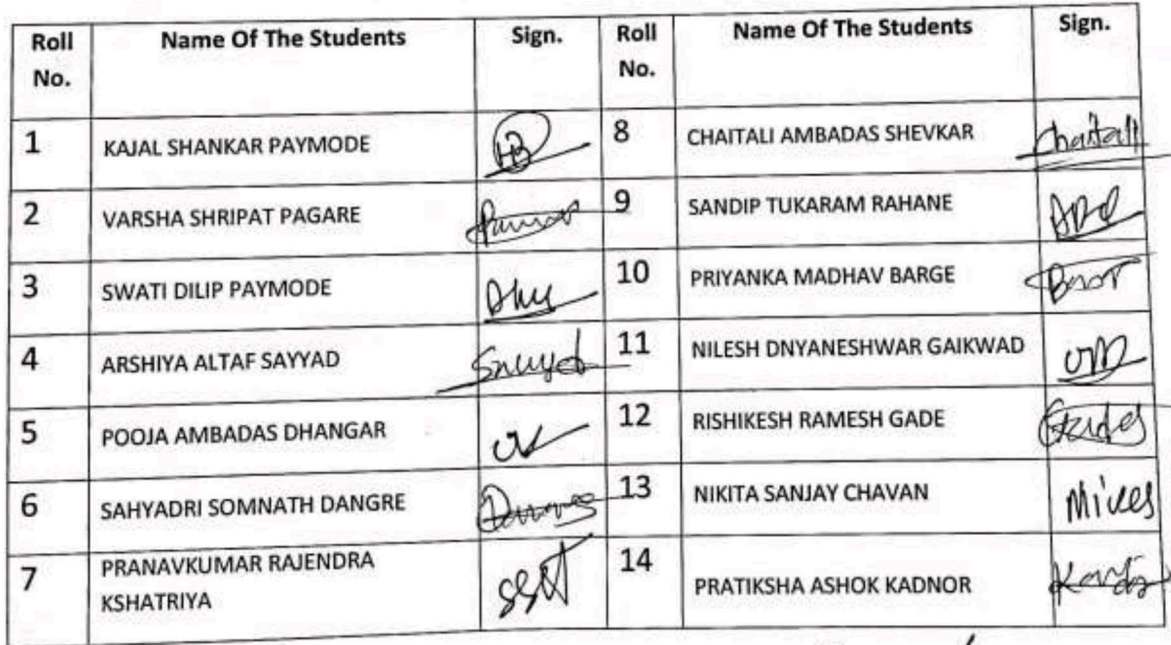 Roll No. Name Of The Students Sign. Roll No. Name Of The Students Sign.
1 KAJAL SHANKAR PAYMODE 8 CHAITALI AMBADAS SHEVKAR Chaitali
2 VARSHA SHRIPAT PAGARE 9 SANDIP TUKARAM RAHANE
3 SWATI DILIP PAYMODE 10 PRIYANKA MADHAV BARGE
4 ARSHIYA ALTAF SAYYAD 11 NILESH DNYANESHWAR GAIKWAD
5 POOJA AMBADAS DHANGAR 12 RISHIKESH RAMESH GADE
6 SAHYADRI SOMNATH DANGRE 13 NIKITA SANJAY CHAVAN
7 PRANAVKUMAR RAJENDRA KSHATRIYA 14 PRATIKSHA ASHOK KADNOR